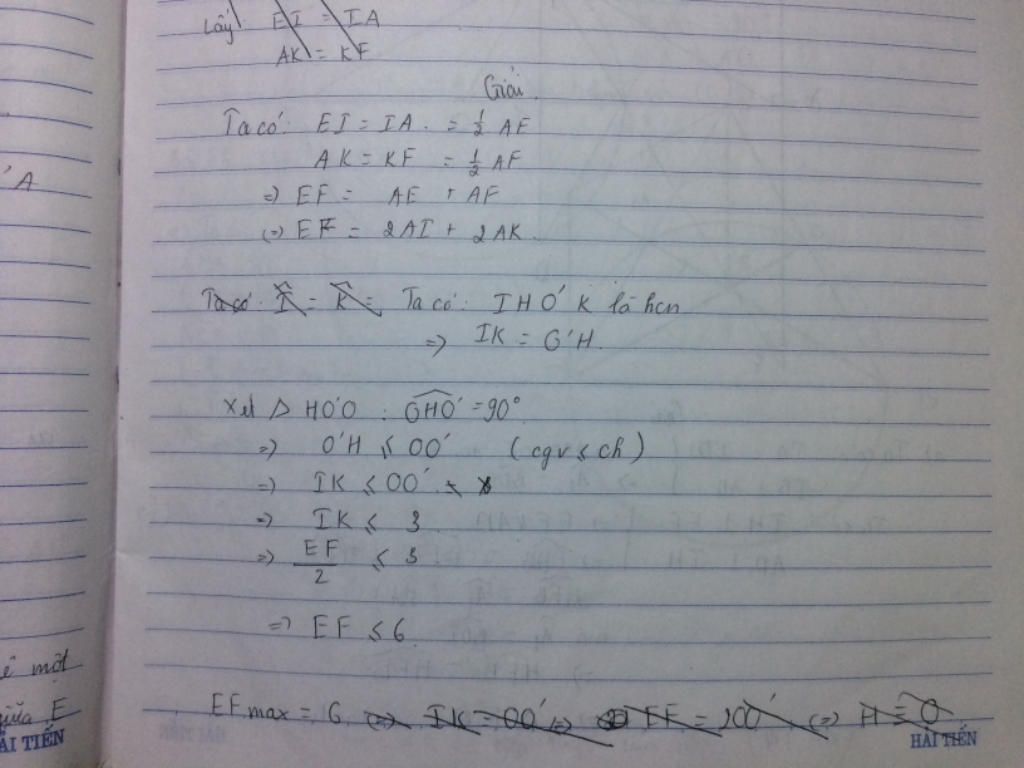 Lấy EI = IA
AK = KF
Giải.
'A
Ta có: EI = IA. = 1/2 AE
AK = KF = 1/2 AF
=> EF = AE + AF
(=> EF = 2AI + 2AK.
Ta có: Î = K̂ = Ta có: IHO'K là hcn
=> IK = O'H.
Xét △ HO'O : OHO' = 90°
=> O'H ≤ OO' (cgv ≤ ch)
=> IK ≤ OO'
=> IK ≤ 3
=> EF/2 ≤ 3
=> EF ≤ 6
ê một
giữa E
EF max = 6 <=> IK = OO' <=> EF = 2OO' (=> H ≡ O
HẢI TIẾN
ẢI TIẾN